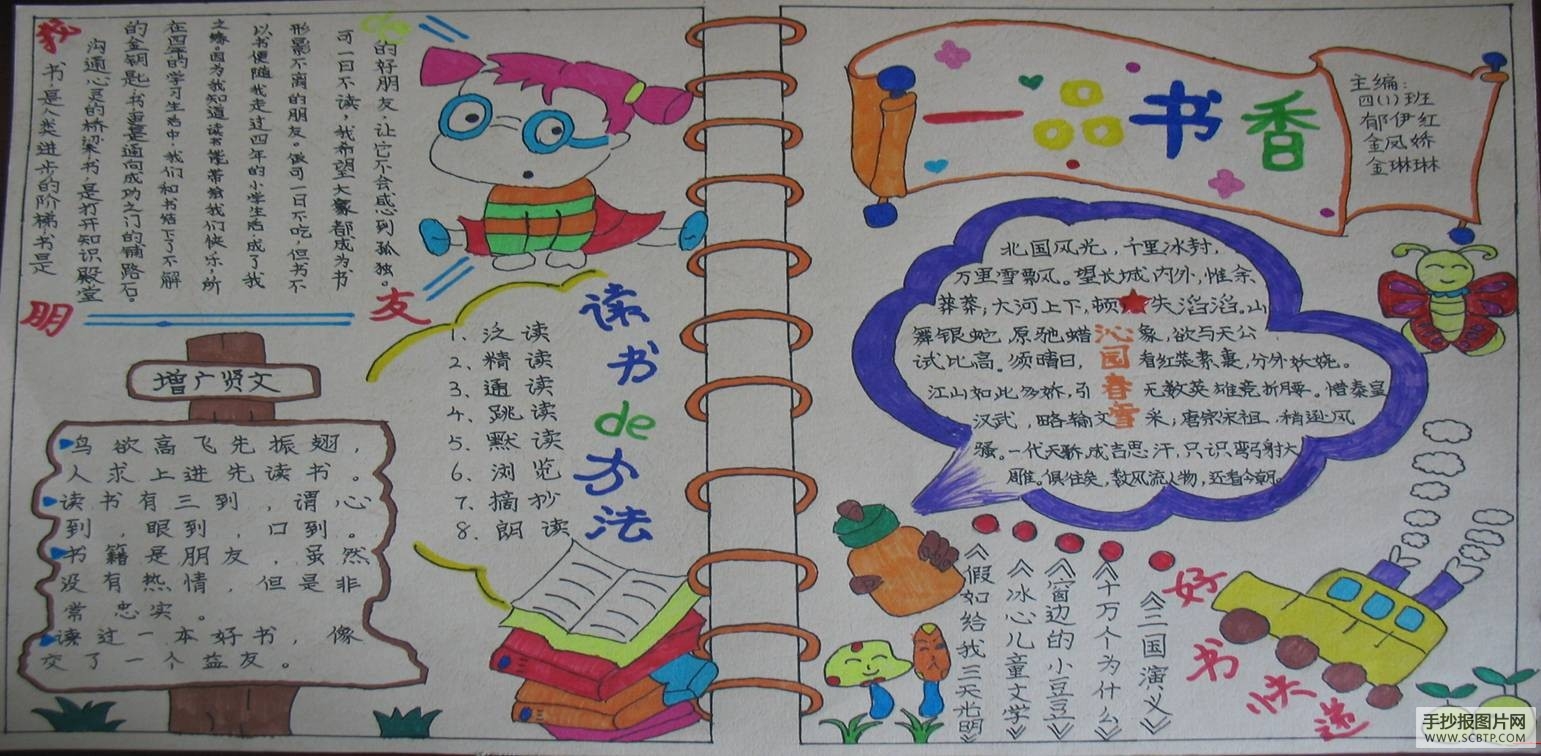 我de朋友
书,是人类进步的阶梯;书是
沟通心灵的桥梁;书,是打开知识殿堂
的金钥匙;书,更是通向成功之门的铺路石。
在四年的学习生活中,我们和书结下了不解
之缘。因为我知道读书能带给我们快乐,所
以书便随我走过四年的小学生活,成了我
形影不离的朋友。做可一日不吃,但书不
可一日不读,我希望大家都成为书
的好朋友,让它不会感到孤独。
增广贤文
鸟欲高飞先振翅,
人求上进先读书。
读书有三到,谓心
到,眼到,口到。
书籍是朋友,虽然
没有热情,但是非
常忠实。
读过一本好书,像
交了一个益友。
读书de方法
1、泛读
2、精读
3、通读
4、跳读
5、默读
6、浏览
7、摘抄
8、朗读
一品书香
主编:
四(1)班
郁伊红
金凤娇
金琳琳
沁园春雪
北国风光,千里冰封,
万里雪飘。望长城内外,惟余
莽莽;大河上下,顿失滔滔。山
舞银蛇,原驰蜡象,欲与天公
试比高。须晴日,看红装素裹,分外妖娆。
江山如此多娇,引无数英雄竞折腰。惜秦皇
汉武,略输文采;唐宗宋祖,稍逊风
骚。一代天骄,成吉思汗,只识弯弓射大
雕。俱往矣,数风流人物,还看今朝。
好书快递
《三国演义》
《十万个为什么》
《窗边的小豆豆》
《冰心儿童文学》
《假如给我三天光明》
手抄报图片网
WWW.SCBTP.COM